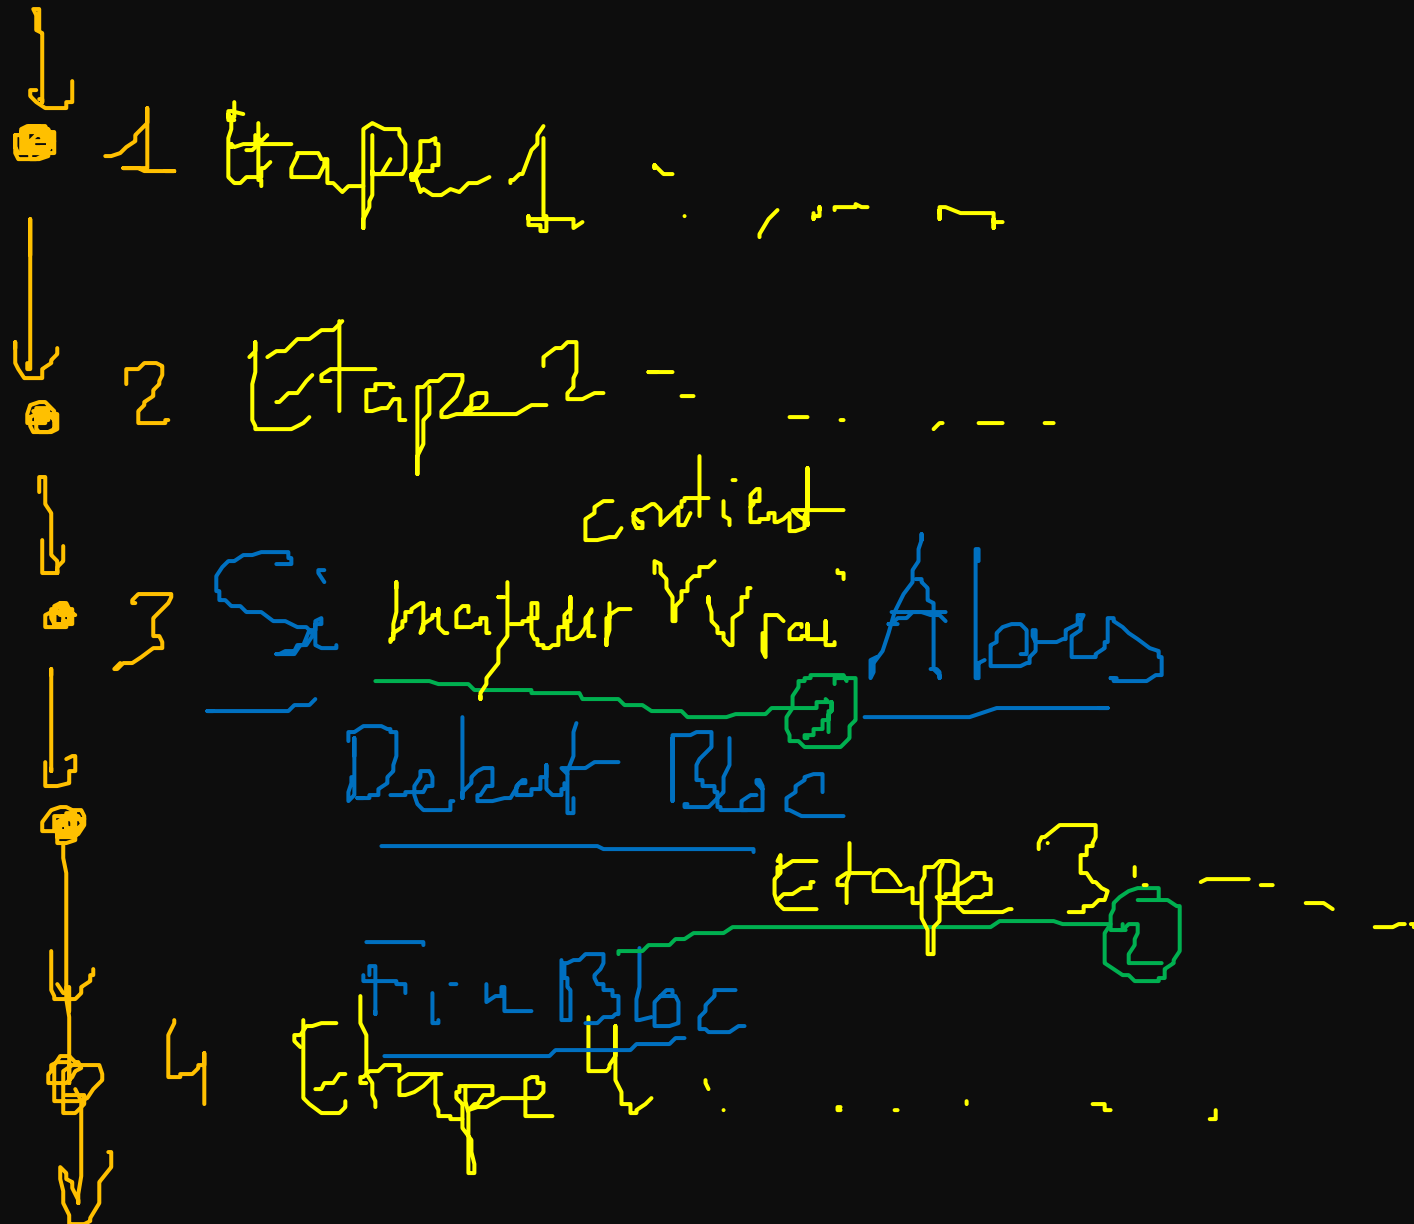 1 Etape 1
2 Etape 2
contient
3 Si Vrai Alors
1
Debut Bloc
Etape 3
2
Fin Bloc
4 Etape 4